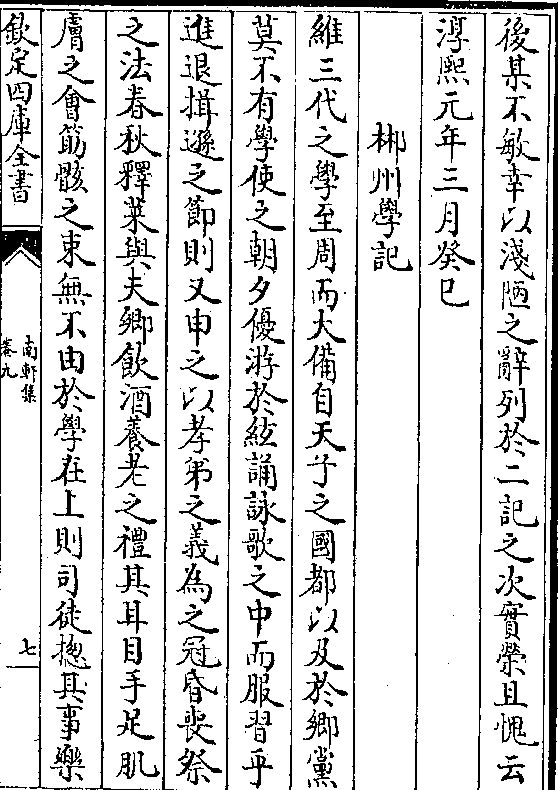 後某不敏幸以淺陋之辭列於二記之次實榮且愧云
淳熙元年三月癸巳
郴州學記
維三代之學至周而大備自天子之國都以及於鄉黨
莫不有學使之朝夕優游於絃誦詠歌之中而服習乎
進退揖遜之節則又申之以孝弟之義為之冠昏喪祭
之法春秋釋菜與夫鄉飲酒養老之禮其耳目手足肌
膚之會筋骸之束無不由於學在上則司徒摠其事樂
欽定四庫全書
南軒集
卷九
七